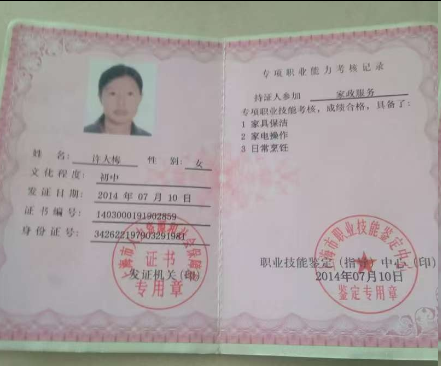 姓 名: 许大梅 性 别: 女
文化程度: 初中
发证日期: 2014 年 07 月 10 日
证书编号: 1403000191902859
身份证号: 342622197903291981
证书
专用章
发证机关(印)
专项职业能力考核记录
持证人参加 家政服务
专项职业技能考核，成绩合格，具备了：
1 家具保洁
2 家电操作
3 日常烹饪
上海市职业技能鉴定中心
职业技能鉴定(指导)中心(印)
2014年07月10日
鉴定专用章